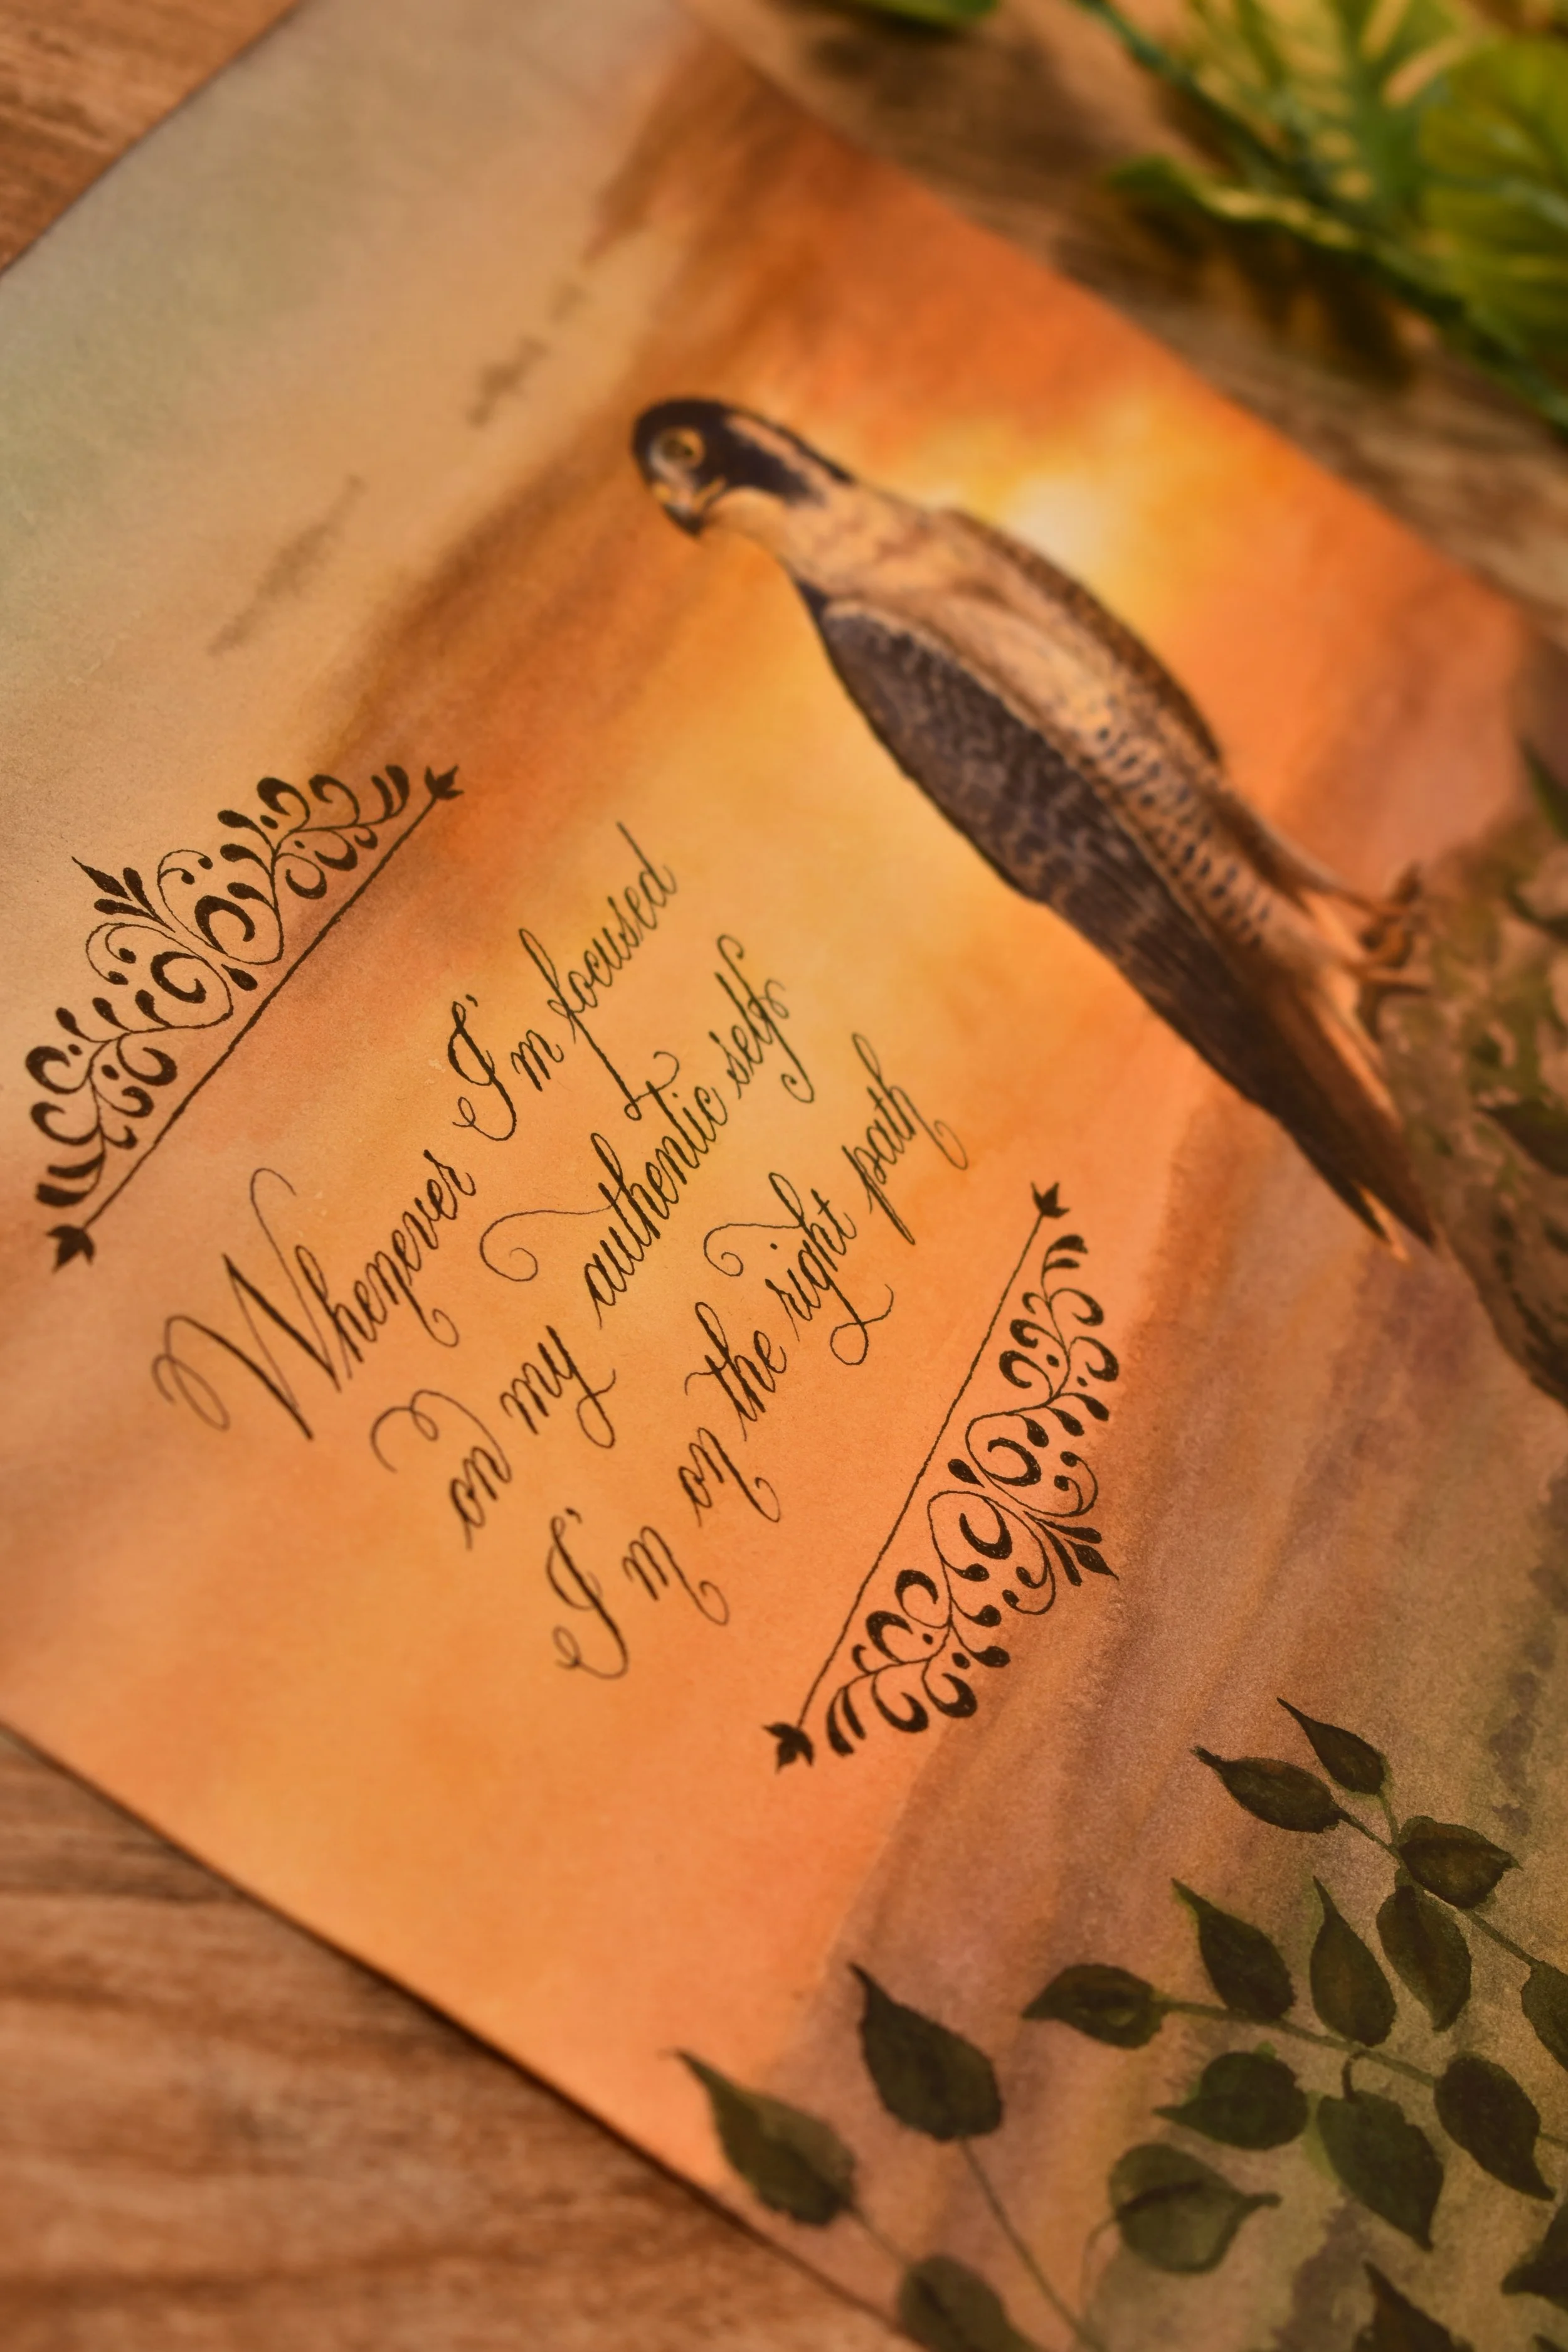 Whenever I'm focused
on my authentic self
I'm on the right path